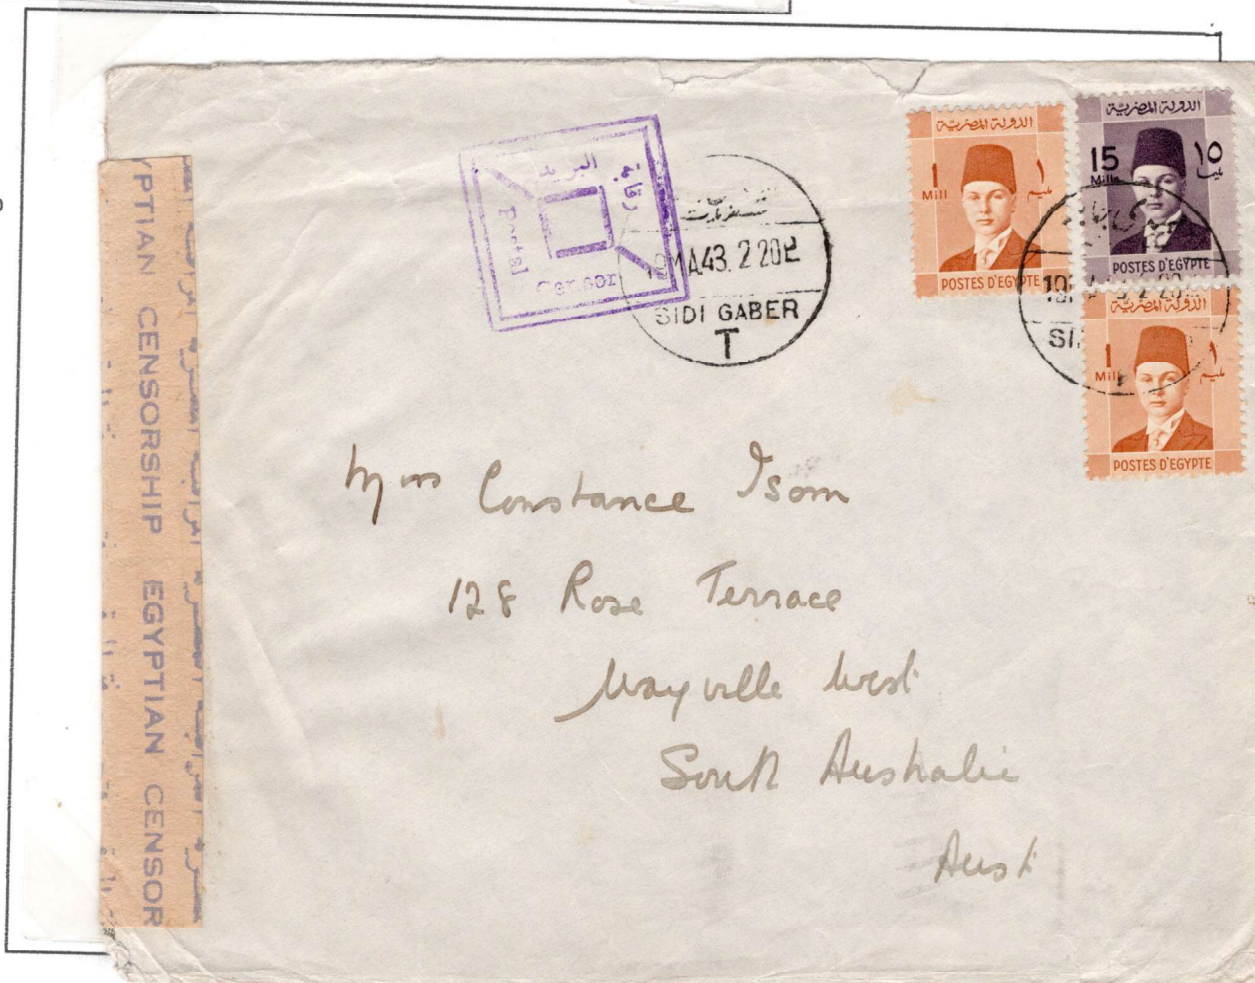 EGYPTIAN CENSORSHIP EGYPTIAN CENSOR
رقابة البريد
Postal Censor
MA43. 2 20P
SIDI GABER
T
الدولة المصرية
1 ١
Mill مليم
POSTES D'EGYPTE
الدولة المصرية
15 ١٥
Mills
POSTES D'EGYPTE
الدولة المصرية
1 ١
Mill مليم
POSTES D'EGYPTE
Constance Isom
128 Rose Terrace
Wayville West
South Australia
Aust